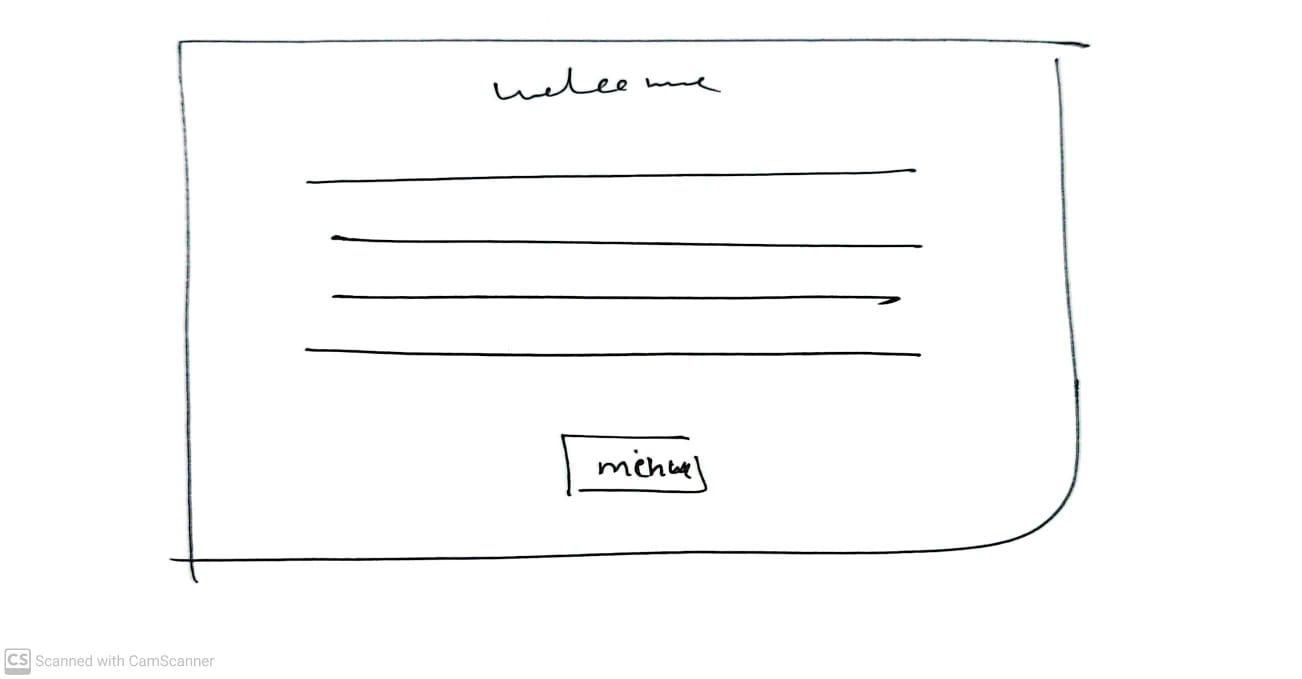 welcome
CS Scanned with CamScanner